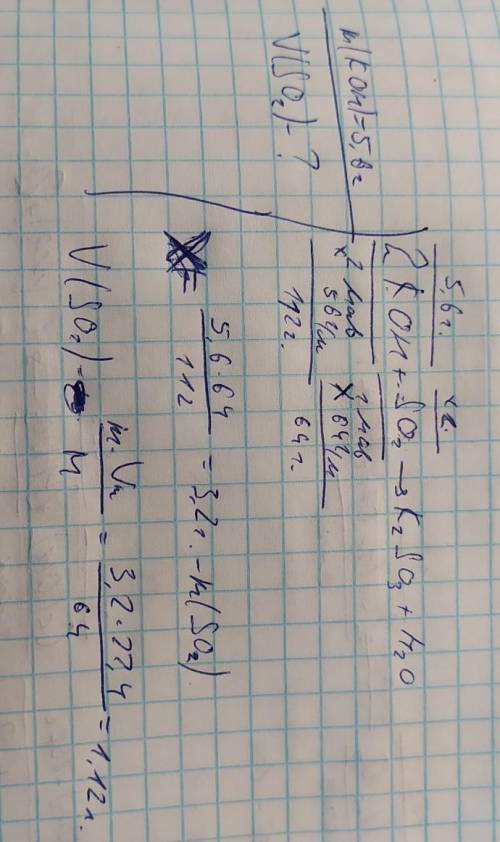 m(KOH)=5,6г
V(SO₂)-?
5,6г. xг.
2KOH + SO₂ → K₂SO₃ + H₂O
2 моль 1 моль
x 56г/м x 64г/м
112г. 64г.
= 5,6·64 / 112 = 3,2г. - m(SO₂)
V(SO₂) = m·Vm / M = 3,2·22,4 / 64 = 1,12л.